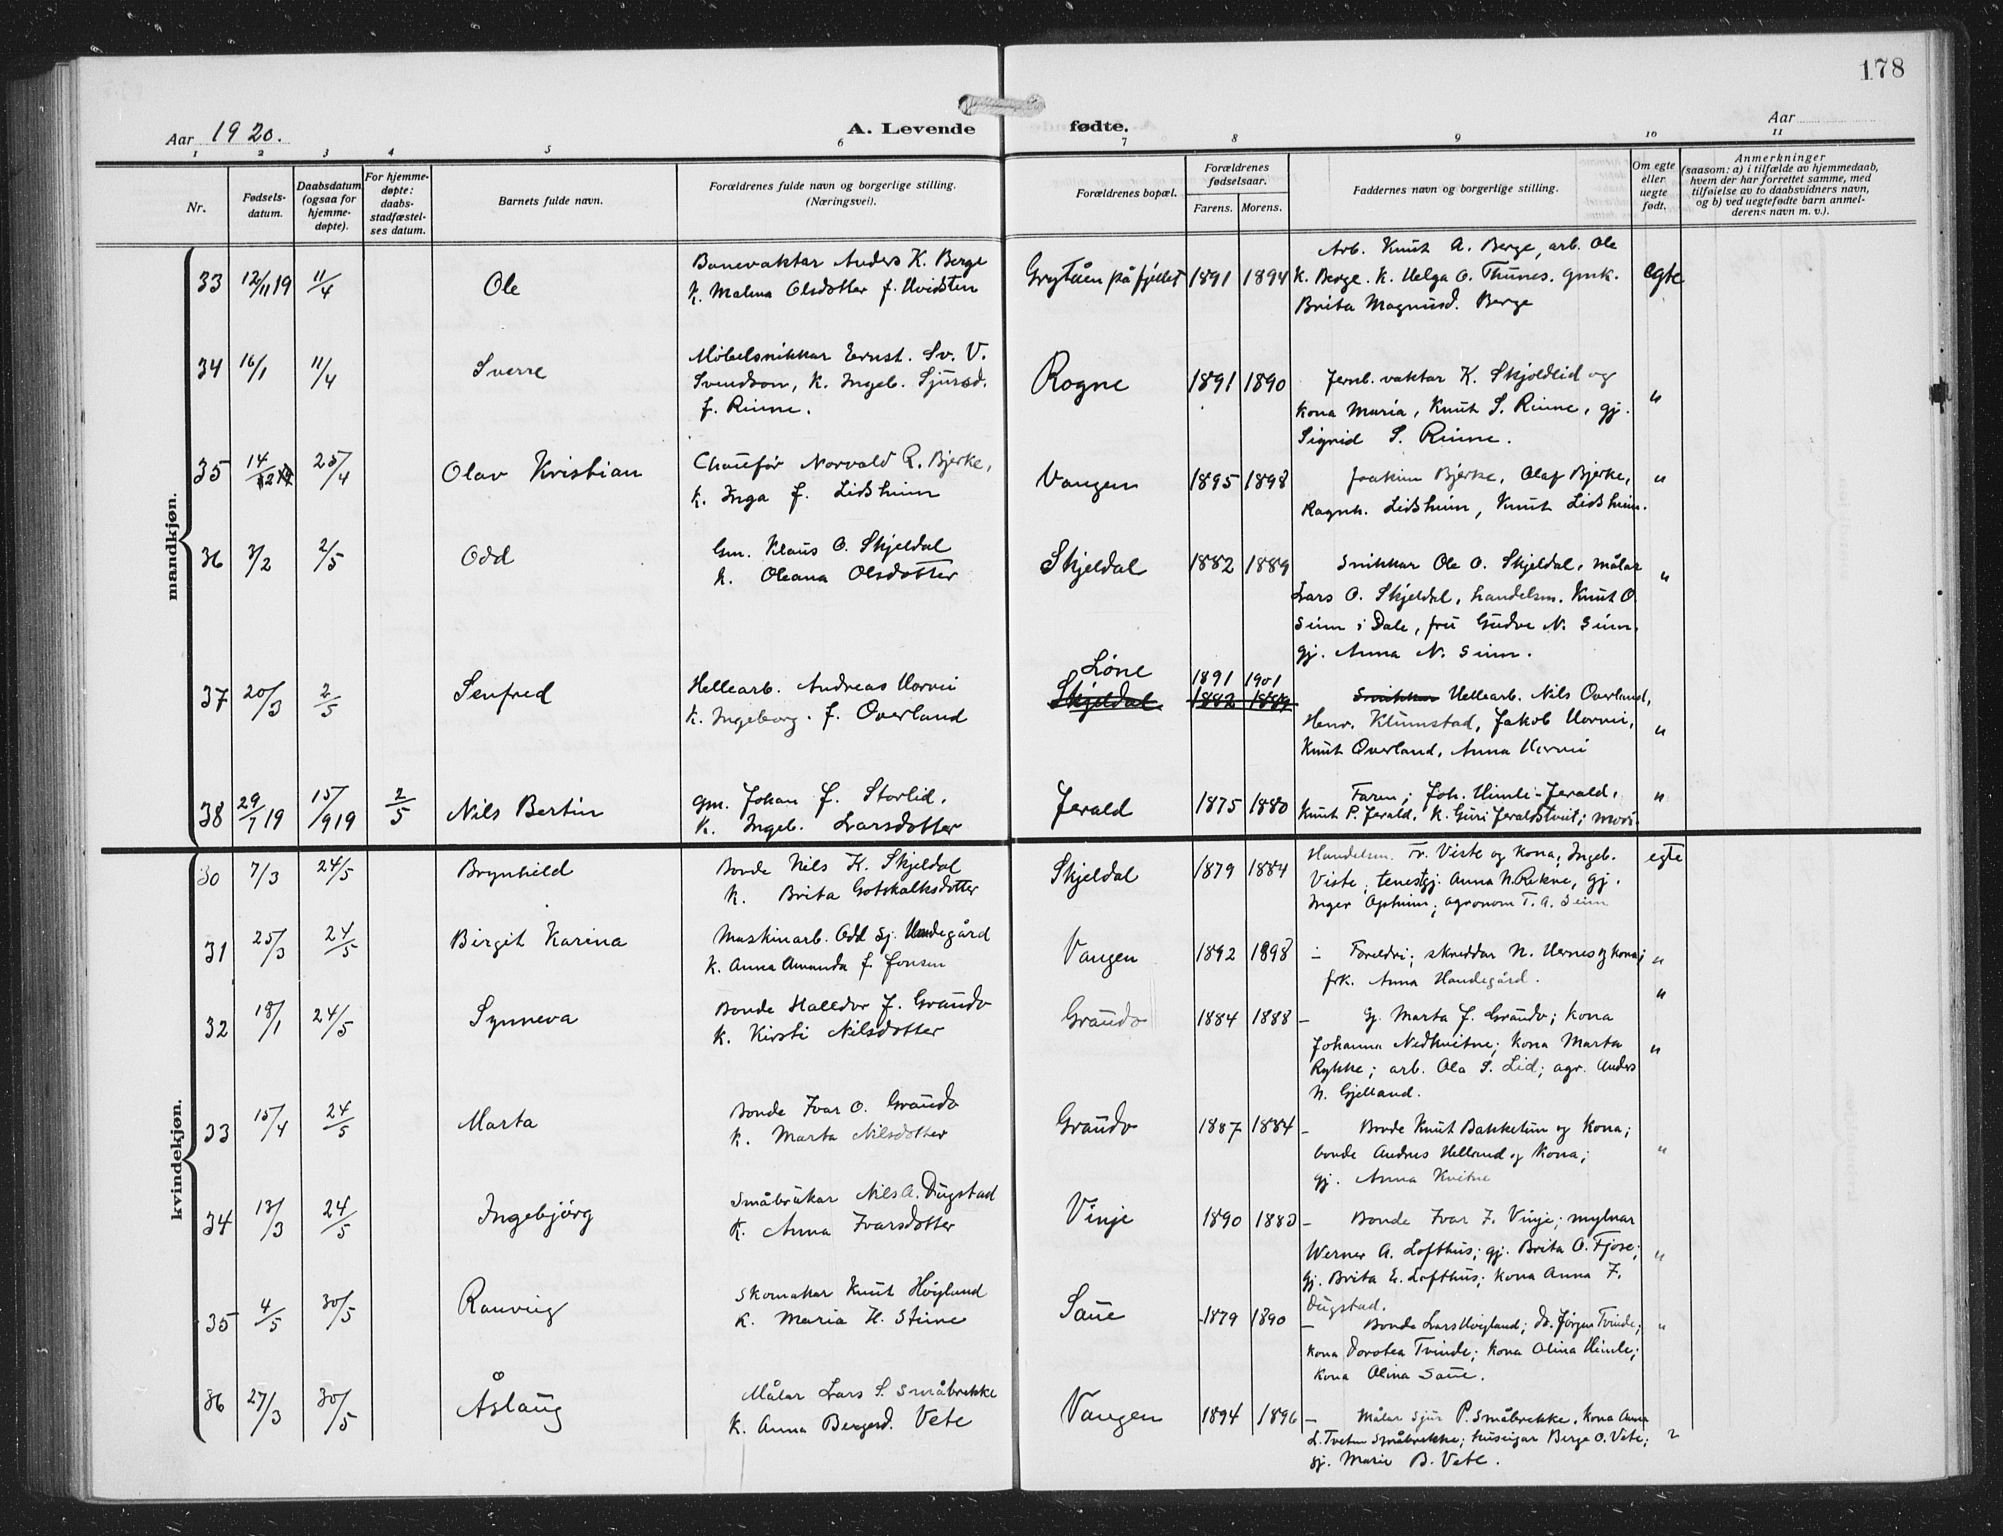 178
Aar 1920.
A. Levende fødte.
Aar
1 2 3 4 5 6 7 8 9 10 11
Nr.
Fødsels-
datum.
Daabsdatum
(ogsaa for
hjemme-
døpte).
For hjemme-
døpte:
daabs-
stadfæstel-
ses datum.
Barnets fulde navn.
Forældrenes fulde navn og borgerlige stilling.
(Næringsvei).
Forældrenes bopæl.
Forældrenes
fødselsaar.
Farens. Morens.
Faddernes navn og borgerlige stilling.
Om egte
eller
uegte
født.
Anmerkninger
(saasom: a) i tilfælde av hjemmedaab,
hvem der har forrettet samme, med
tilføielse av to daabsvidners navn,
og b) ved uegtefødte barn anmel-
derens navn m. v.).
mandkjøn.
33 12/11 19 11/4 Ole
Banevaktar Anders K. Berge
K. Malena Olsdotter f. Hvidsten
Grytåen på fjellet 1891 1894
Arb. Knut A. Berge, arb. Ole
K. Berge. K. Helga O. Thunes. gmk.
Brita Magnusd. Berge
egte
34 16/1 11/4 Sverre
Møbelsnikkar Ernst. Sv. V.
Svendson, K. Ingeb. Sjursd.
f. Rinne.
Rogne 1891 1890
Jernb. vaktar K. Skjoldlid og
kona Maria, Knut S. Rinne, gj.
Sigrid S. Rinne.
"
35 14/12 19 25/4 Olav Kristian
Chaufør Norvald R. Bjerke,
K. Inga f. Lidsheim
Vangen 1895 1898
Joakim Bjerke, Olaf Bjerke,
Ragnh. Lidsheim, Knut Lidsheim.
"
36 3/2 2/5 Odd
Gm. Klaus O. Skjeldal
K. Oleana Olsdotter
Skjeldal 1882 1889
Snikkar Ole O. Skjeldal, målar
Lars O. Skjeldal, handelsm. Knut O.
Seim i Dale, fru Gudve N. Seim,
gj. Anna N. Seim.
"
37 20/3 2/5 Senfred
Hellearb. Andreas Horvei
K. Ingeborg f. Overland
Løne 1891 1901
Skjeldal 1882 1889
Snikkar Hellearb. Nils Overland,
Henr. Klumstad, Jakob Horvei,
Knut Overland, Anna Horvei
"
38 29/7 19 15/9 19 2/5 Nils Bertin
gm. Johan J. Storlid,
K. Ingeb. Larsdotter
Jerald 1875 1880
Faren; Joh. Himle-Jerald,
Knut P. Jerald, K. Guri Jeraldstveit; mori
"
kvindekjøn.
30 7/3 24/5 Brynhild
Bonde Nils K. Skjeldal
K. Brita Gotskalksdotter
Skjeldal 1879 1884
Handelsm. Fr. Viste og kona, Ingeb.
Viste, tenestgj. Anna N. Rekve, gj.
Inger Opheim; agronom T. A. Seim
egte
31 25/3 24/5 Birgit Karina
Maskinarb. Odd Sj. Handegård
K. Anna Amanda f. Jonsen
Vangen 1892 1898
– Foreldri; skreddar N. Hernes og kona;
frk. Anna Handegård.
"
32 18/1 24/5 Synneva
Bonde Halldor J. Graudo
K. Kirsti Nilsdotter
Graudo 1884 1888
– Gj. Marta J. Graudo; kona
Johanna Nedkvitne; kona Marta
Rykke; arb. Ola S. Lid; agr. Anders
N. Gjelland.
"
33 15/4 24/5 Marta
Bonde Ivar O. Graudo
K. Marta Nilsdotter
Graudo 1887 1884
– Bonde Knut Bakketun og kona;
bonde Andres Helland og kona;
gj. Anna Kvitne
"
34 13/3 24/5 Ingebjørg
Småbrukar Nils A. Dugstad
K. Anna Ivarsdotter
Vinje 1890 1883
– Bonde Ivar J. Vinje; mylnar
Werner A. Lofthus; gj. Brita O. Fjose;
gj. Brita E. Lofthus; kona Anna F.
Dugstad.
"
35 4/5 30/5 Ranveig
Skomakar Knut Høyland
K. Maria H. Stine
Saue 1879 1890
– Bonde Lars Høyland; do. Jørgen Tvinde;
kona Dorotea Tvinde; kona Olina Himle;
kona Olina Saue.
"
36 27/3 30/5 Åslaug
Målar Lars S. Småbrekke
K. Anna Bergesd. Vete
Vangen 1894 1896
– Målar Sjur P. Småbrekke, kona Anna
L. Tveten Småbrekke; huseigar Berge O. Vete;
gj. Marie B. Vete.
"